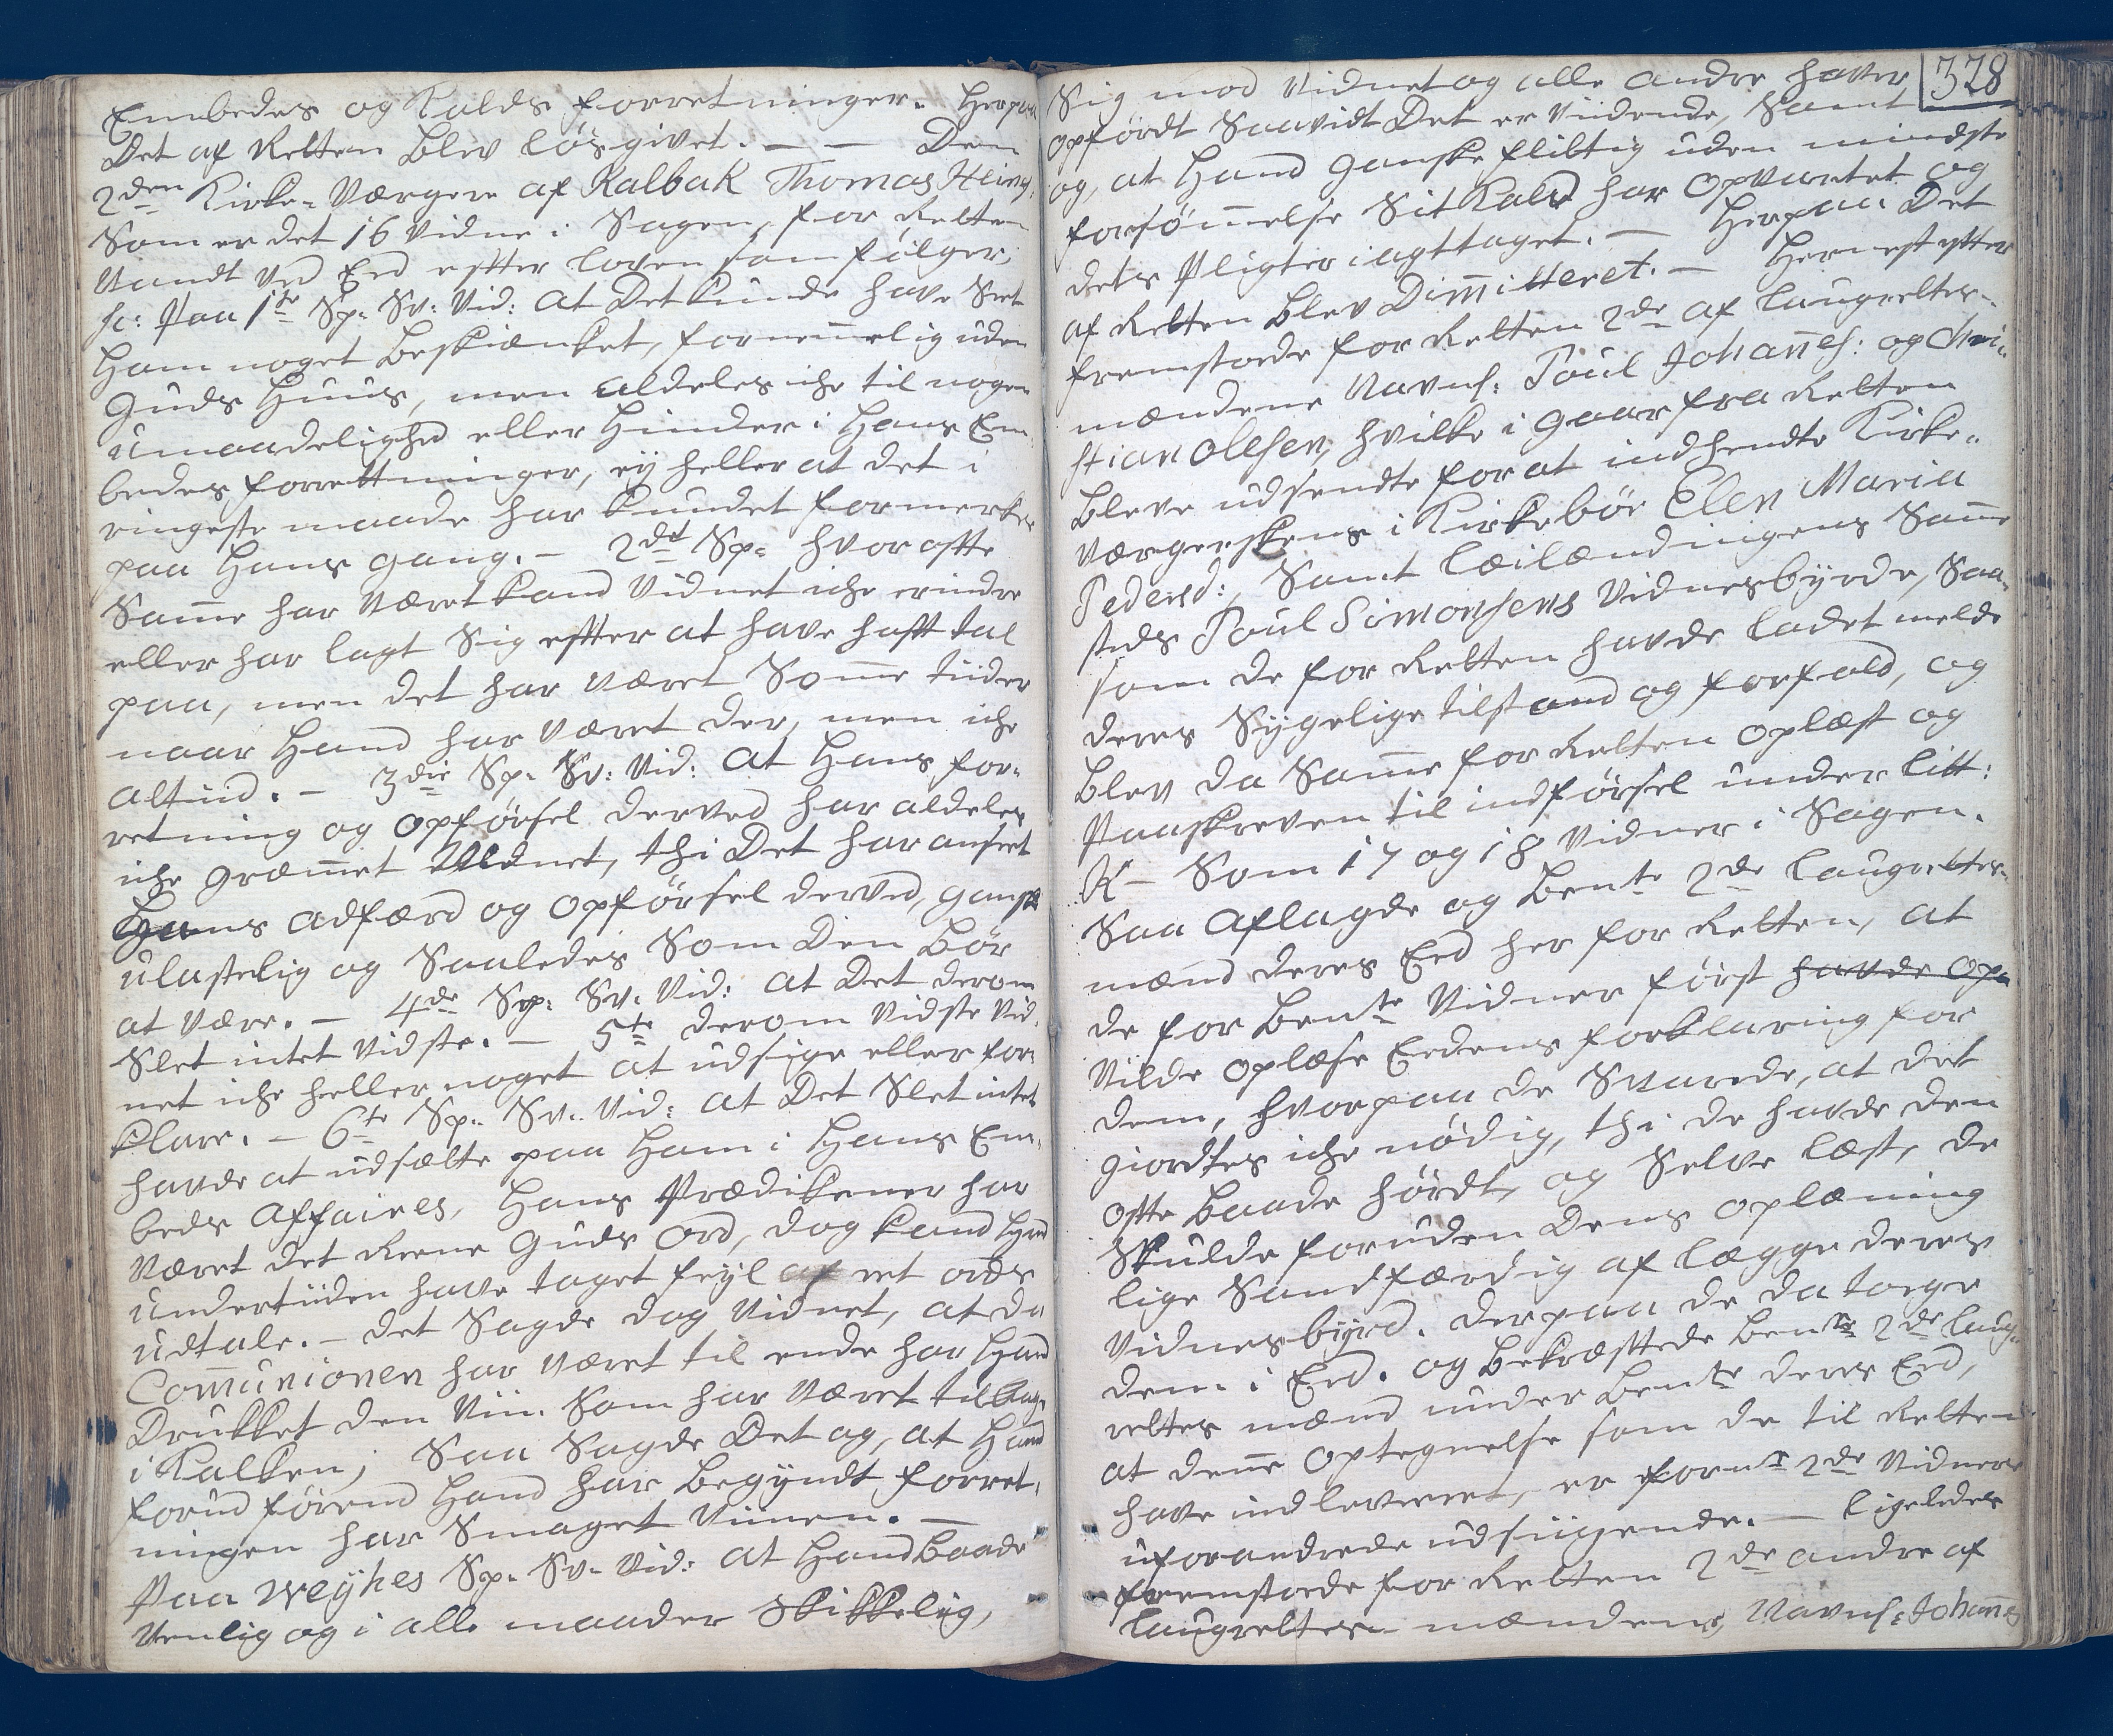 Embedes og Kalds forretninger. Herpaa
Det af Retten blev løsgivet. — — Den
2den Kirke-Værgere af Kalbak Thomas Heins:
Som er det 16 Vidne i Sagen, for Retten
Vandt ved Eed efter loven som følger,
sc: Paa 1te Sp. Sv: Vid: at Det kunde have Seet
Ham noget beskienket, fornemmelig uden
Guds Huus, men aldeles iche til nogen
umaadelighed eller Hinder i Hans Em-
bedes forrettninger, ey heller at det i
ringeste maade har kundet formerkes
paa Hans gang. — 2det Sp. hvor offte
Samme har været kand Vidnet iche erindre
eller har lagt Sig efter at have hafft tal
paa, men det har været Somme tiider
naar Hand har været der, men iche
altiid. — 3die Sp. Sv: Vid: At Hans for-
retning og opførsel derved har aldeles
iche græmmet Vidnet, thi Det har anseet
Hans adfærd og opførsel derved, ganske
ulastelig og Saaledes Som Den bør
at være. — 4de Sp. Sv. Vid: at Det derom
Slet intet vidste. — 5te derom vidste Vid-
net iche heller noget at udsige eller for-
klare. — 6te Sp. Sv. Vid: at Det Slet intet
havde at udsætte paa Ham i Hans Em-
beds Affaires, Hans Prædikener har
været det Reene Guds ord, dog kand Hand
undertiiden have taget feyl af eet ords
udtale. — det Sagde dog Vidnet, at da
Communionen har været til ende har Hand
Drukket den Viin Som har været tilbage
i Kalken; Saa Sagde Det og, at Hand
forud førend Hand har begyndt forret-
ningen har Smaget Viinen. —
Paa Weyhes Sp. Sv. Vid: at Hand baade
Venlig og i alle maader Skikkelig,
328
Sig mod Vidnet og alle andre haver
opført Saavidt Det er Viidende, Samt
og, at Hand ganske flittig uden mindste
forsømmelse Sit Kald har Opvartet og
dets Pligter iagttaget. — Herpaa Det
af Retten blev Dimitteret. — Hernest efter
fremstode for Retten 2de af laugrettes-
mændene Navnl: Poul Johannes: og Chri-
stian Olesen, hvilke i gaar fra Retten
bleve udsendte for at indhendte Kirke-
værgerskens i Kirkebøe Elen Maria
Pedersd:, Samt læilændingens Samme-
steds Poul Simonsens Vidnesbyrde, Saa-
som de for Retten havde ladet melde
deres Sygelige tilstand og forfald, og
blev da Samme for Retten oplæst og
Paaskreven til indførsel under litt:
K — Som 17 og 18 Vidner i Sagen.
Saa aflagde og bente 2de laugrettes-
mænd deres Eed her for Retten, at
de for bente Vidner først havde op-
vilde oplæse Eedens forklaring for
dem, hvorpaa de Svarede, at det
giordtes iche nødig, thi de havde den
offte baade hørdt, og Selve læst, de
Skulde foruden Dens oplæsning
lige Sandfærdig aflægge deres
Vidnesbyrd. Derpaa de da toege
dem i Eed. og bekræfttede bente 2de laug-
rettes mænd under bente deres Eed,
at denne Optegnelse som de til Retten
have indleveret, er fornte 2de Vidners
uforandrede udsiigende. — ligeledes
fremstode for Retten 2de andre af
laugrettes-mændene, Navnl: Johannes